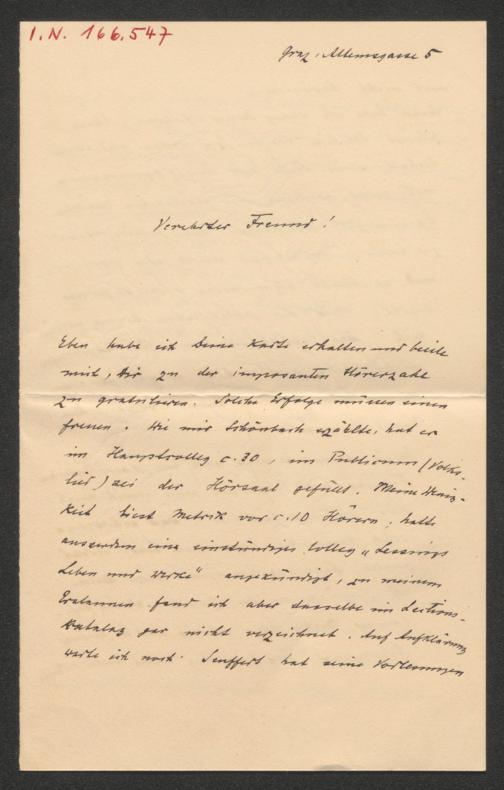 I.N. 166.547
Graz, Attemsgasse 5
Verehrter Freund!
Eben habe ich Deine Karte erhalten und beeile
mich, Dir zu der imposanten Hörerzahl
zu gratulieren. Solche Erfolge müssen einen
freuen. Wie mir Schönbach erzählte, hat er
im Hauptcolleg c. 30, im Publicum (Volks-
lied) sei der Hörsaal gefüllt. Meine Wenig-
keit liest Metrik vor c. 10 Hörern; hatte
ausserdem eine einstündiges Colleg „Lessings
Leben und Werke" angekündigt, zu meinem
Erstaunen fand ich aber dasselbe im Lections-
katalog gar nicht verzeichnet. Auf Aufklärung
warte ich noch. Seuffert hat seine Vorlesungen